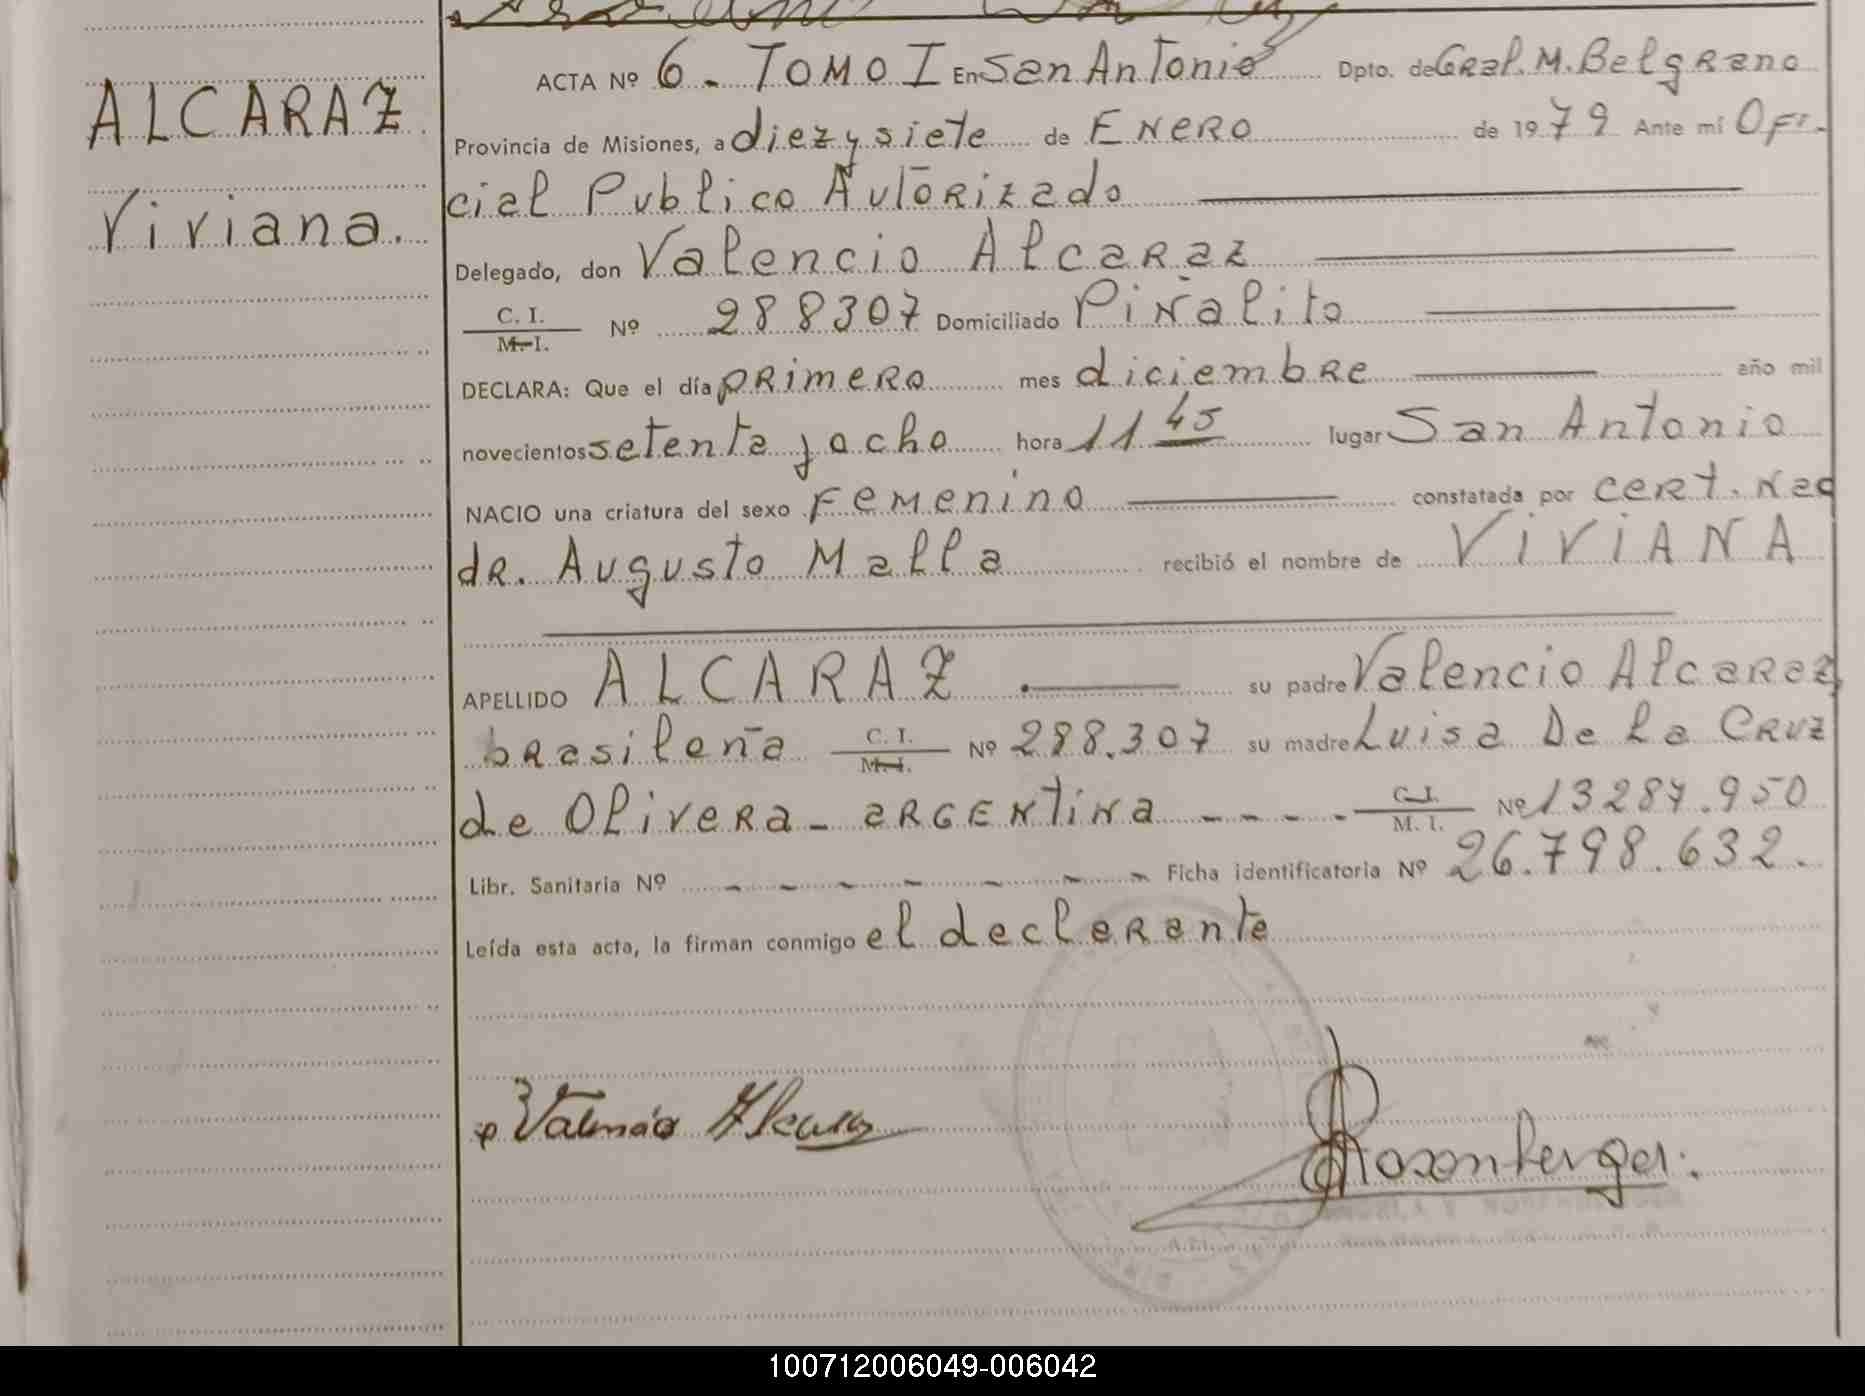 ALCARAZ
Viviana.
ACTA Nº 6 - TOMO I En San Antonio Dpto. de Gral. M. Belgrano
Provincia de Misiones, a diez y siete de Enero de 1979 Ante mí Ofi-
cial Publico Autorizado
Delegado, don Valencio Alcaraz
C. I. M. I. Nº 288307 Domiciliado Piñalito
DECLARA: Que el día primero mes diciembre año mil
novecientos setenta y ocho hora 11 45 lugar San Antonio
NACIO una criatura del sexo Femenino constatada por cert. Nac
dr. Augusto Malla recibió el nombre de VIVIANA
APELLIDO ALCARAZ su padre Valencio Alcaraz,
brasileña C. I. M. I. Nº 288.307 su madre Luisa De La Cruz
de Olivera - argentina - - - - C. I. M. I. Nº 13287.950
Libr. Sanitaria Nº - - - - - - - Ficha identificatoria Nº 26.798.632.
Leída esta acta, la firman conmigo el declarante
Valencio Alcaraz
Rosenberger.
100712006049-006042